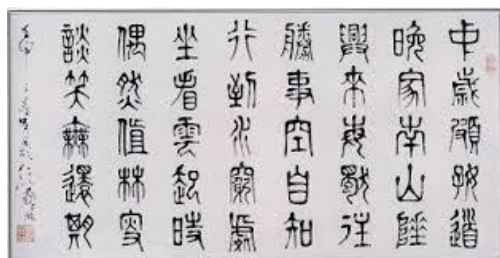 中歲頗好道
晚家南山陲
興來每獨往
勝事空自知
行到水窮處
坐看雲起時
偶然值林叟
談笑無還期